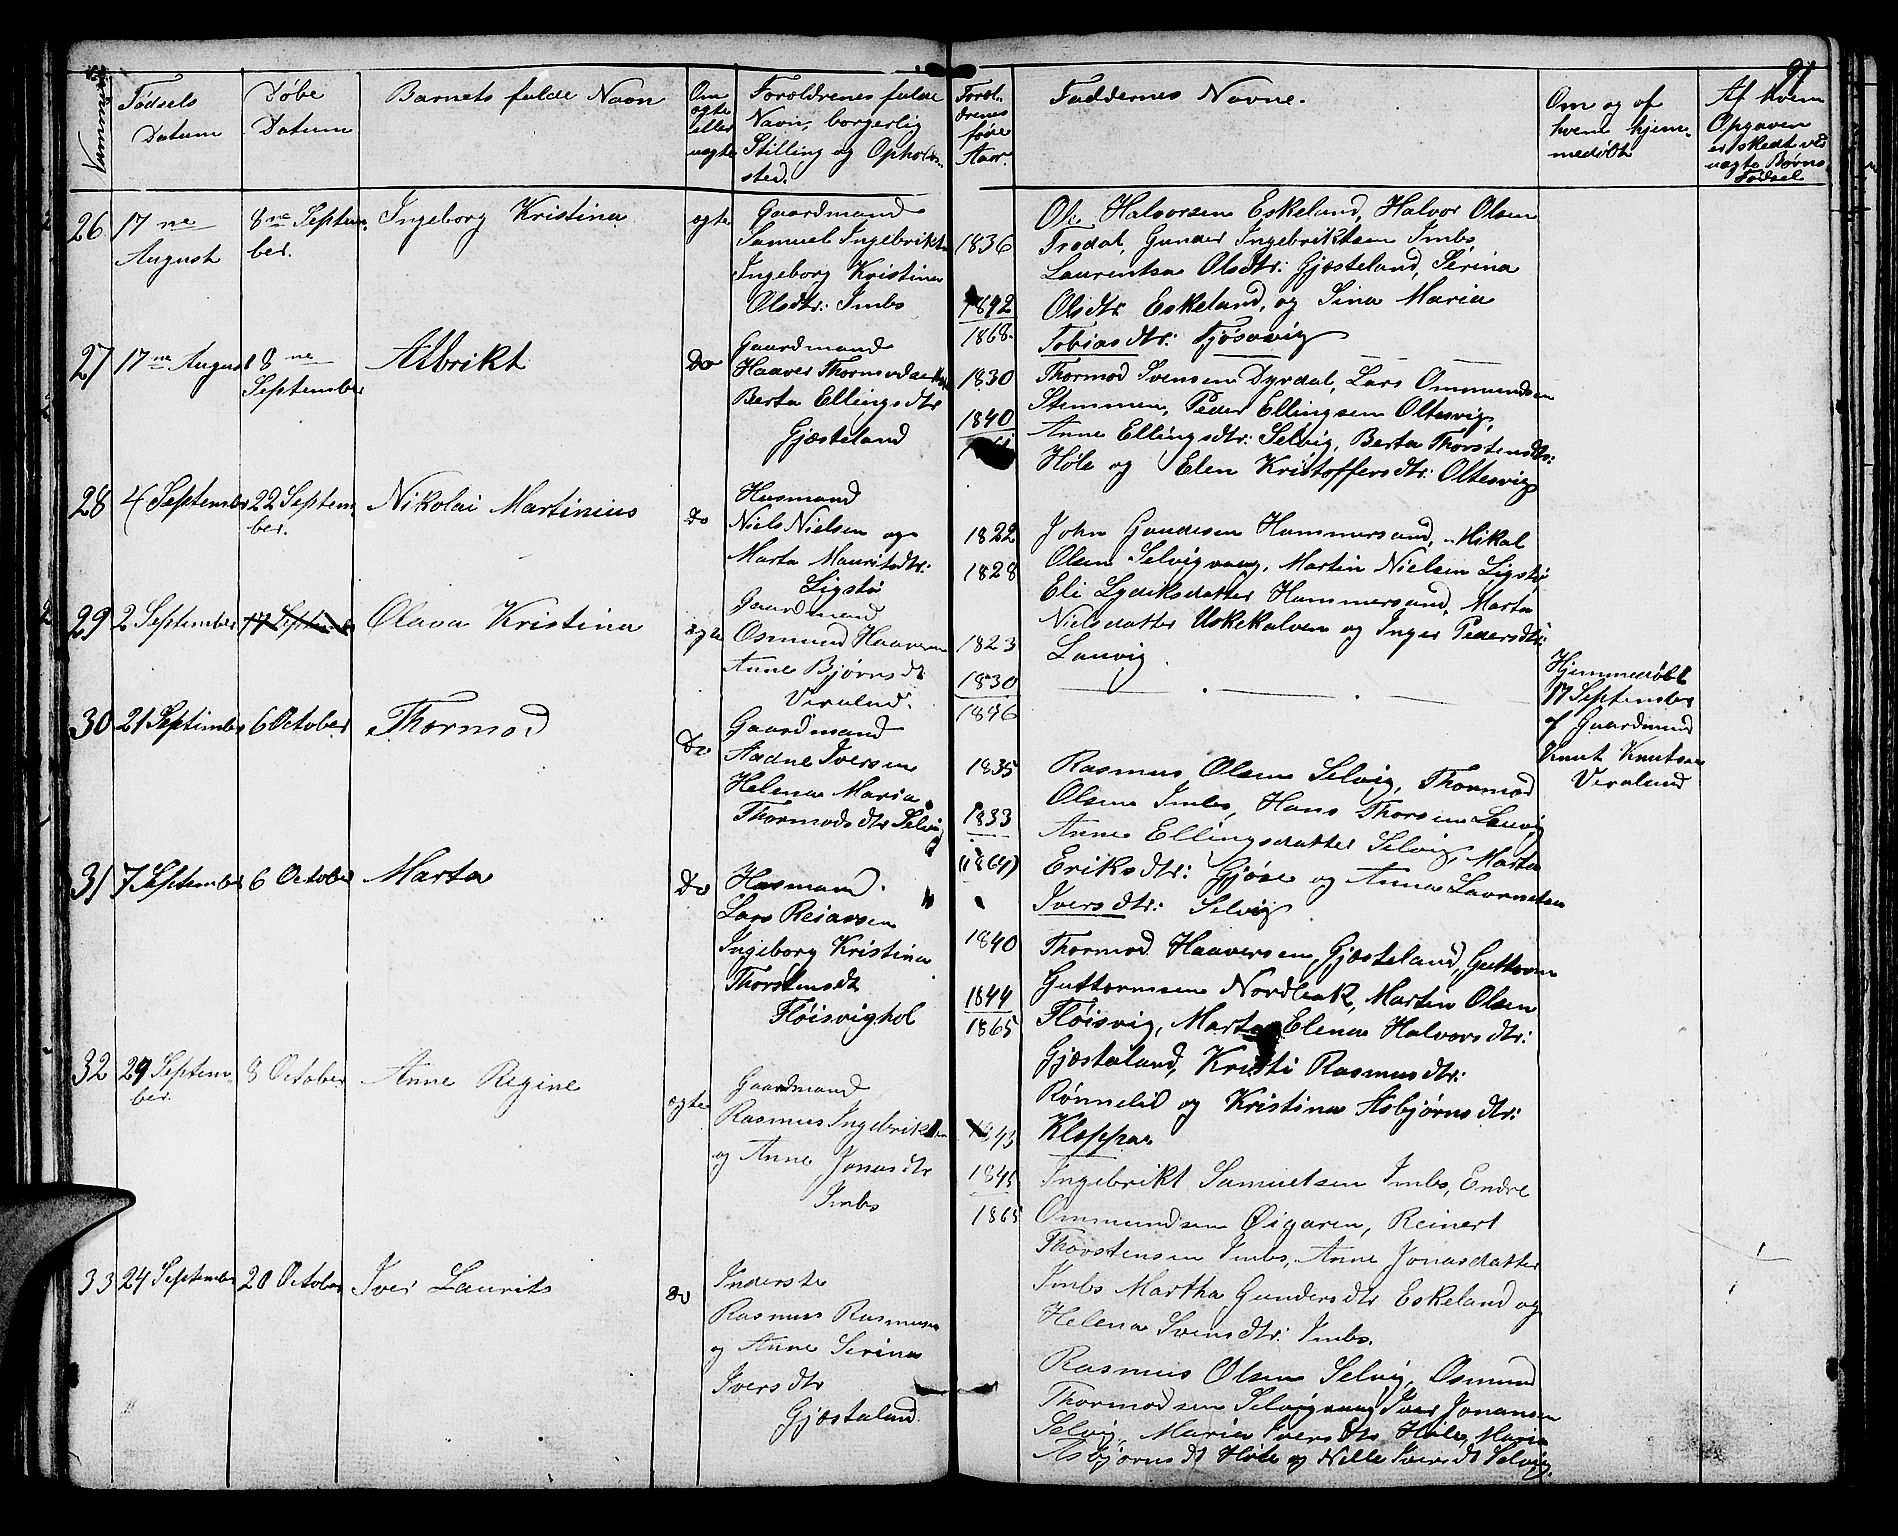 91
Nummer
Fødsels
Datum
Døbe
Datum
Barnets fulde Navn
Om
ægte
eller
uægte
Forældrenes fulde
Navn, borgerlig
Stilling og Opholds-
sted.
Foræl-
drenes
føde
Aar.
Faddernes Navne.
Om og af
hvem hjem-
medøbt
Af hvem
Opgaven
er skedt ved
uægte Børns
Fødsel
26 17 ne
August
8 ne Septem-
ber.
Ingeborg Kristina
ægte
Gaardmand
Samuel Ingebrikts
Ingeborg Kristina
Olsdtr: Imbs
1836
1842
1868.
Ole Halvorsen Eskeland, Halvor Olsen
Trodal, Gunder Ingebriktsen Imbs,
Laurentsa Olsdtr: Gjæsteland, Serina
Olsdtr Eskeland, og Sina Maria
Tobiasdtr: Fjøsavig
27 17 ne August
8 ne
September
Albrikt
Do
Gaardmand
Haaver Thormodsen
Berta Ellingsdtr
Gjæsteland
1830
1840
Thormod Svensen Dyrdal, Lars Ommundsen
Stemmen, Peder Ellingsen Oltesvig,
Anne Ellingsdtr: Selvig, Berta Thorstensdtr:
Høle og Elen Kristoffersdtr: Oltesvig
28 4 September
22 Septem-
ber.
Nikolai Martinius
Do
Husmand
Niels Nielsen og
Marta Mauritsdtr:
Ligstø
1822
1828
John Gundesen Hammersand, Mikal
Olsen Selvigvaag, Martin Nielsen Ligstø,
Eli Lydiksdatter Hammersand, Marta
Nielsdatter Uskekalven og Inger Pedersdtr:
Lauvig.
29 2 September
17 September
Olava Kristina
ægte
Gaardmand
Osmund Haaversen
Anne Bjørnsdt
Veraland.
1823
1830
1846
Hjemmedøbt
17 September
af Gaardmand
Knut Knutsen
Veraland
30 21 September
6 October
Thormod
Do
Gaardmand
Aadne Iversen
Helena Maria
Thormodsdtr Selvig
1835
1833
(1864)
Rasmus Olsen Selvig, Thormod
Olsen Imbs, Hans Thorsen Lauvig
Anne Ellingsdatter Selvig, Marta
Eriksdtr: Gjøse og Anna Laurentsa
Iversdtr: Selvig
31 7 September
6 October
Marta
Do
Husmand.
Lars Reiarsen
Ingeborg Kristina
Thorstensdt
Fløisvighol
1840
1844
1865
Thormod Haaversen, Gjæsteland, Guttorm
Guttormsen Nordbrak, Martin Olsen
Fløisvig, Marta Elena Halvorsdtr:
Gjæstaland, Kristi Rasmusdtr:
Rønnelid og Kristina Asbjørnsdtr:
Kleppa
32 29 Septem-
ber.
8 October
Anne Regine
ægte
Gaardmand
Rasmus Ingebriktsen
og Anne Jonasdtr
Imbs
1843
1845
1865
Ingebrikt Samuelsen Imbs, Endre
Ommundsen Øigaren, Reinert
Thorstensen Imbs, Anne Jonasdatter
Imbs Martha Gundersdtr Eskeland og
Helena Svensdtr: Imbs.
33 24 September
20 October
Iver Laurits
Do
Inderste
Rasmus Rasmusen
og Anne Serina
Iversdtr
Gjæstaland.
Rasmus Olsen Selvig, Osmund
Thormodsen Selvigvaag Iver Jonansen
Selvig, Maria Iversdtr Høle, Marie
Asbjørnsdt Høle og Nille Iversdt Selvig.